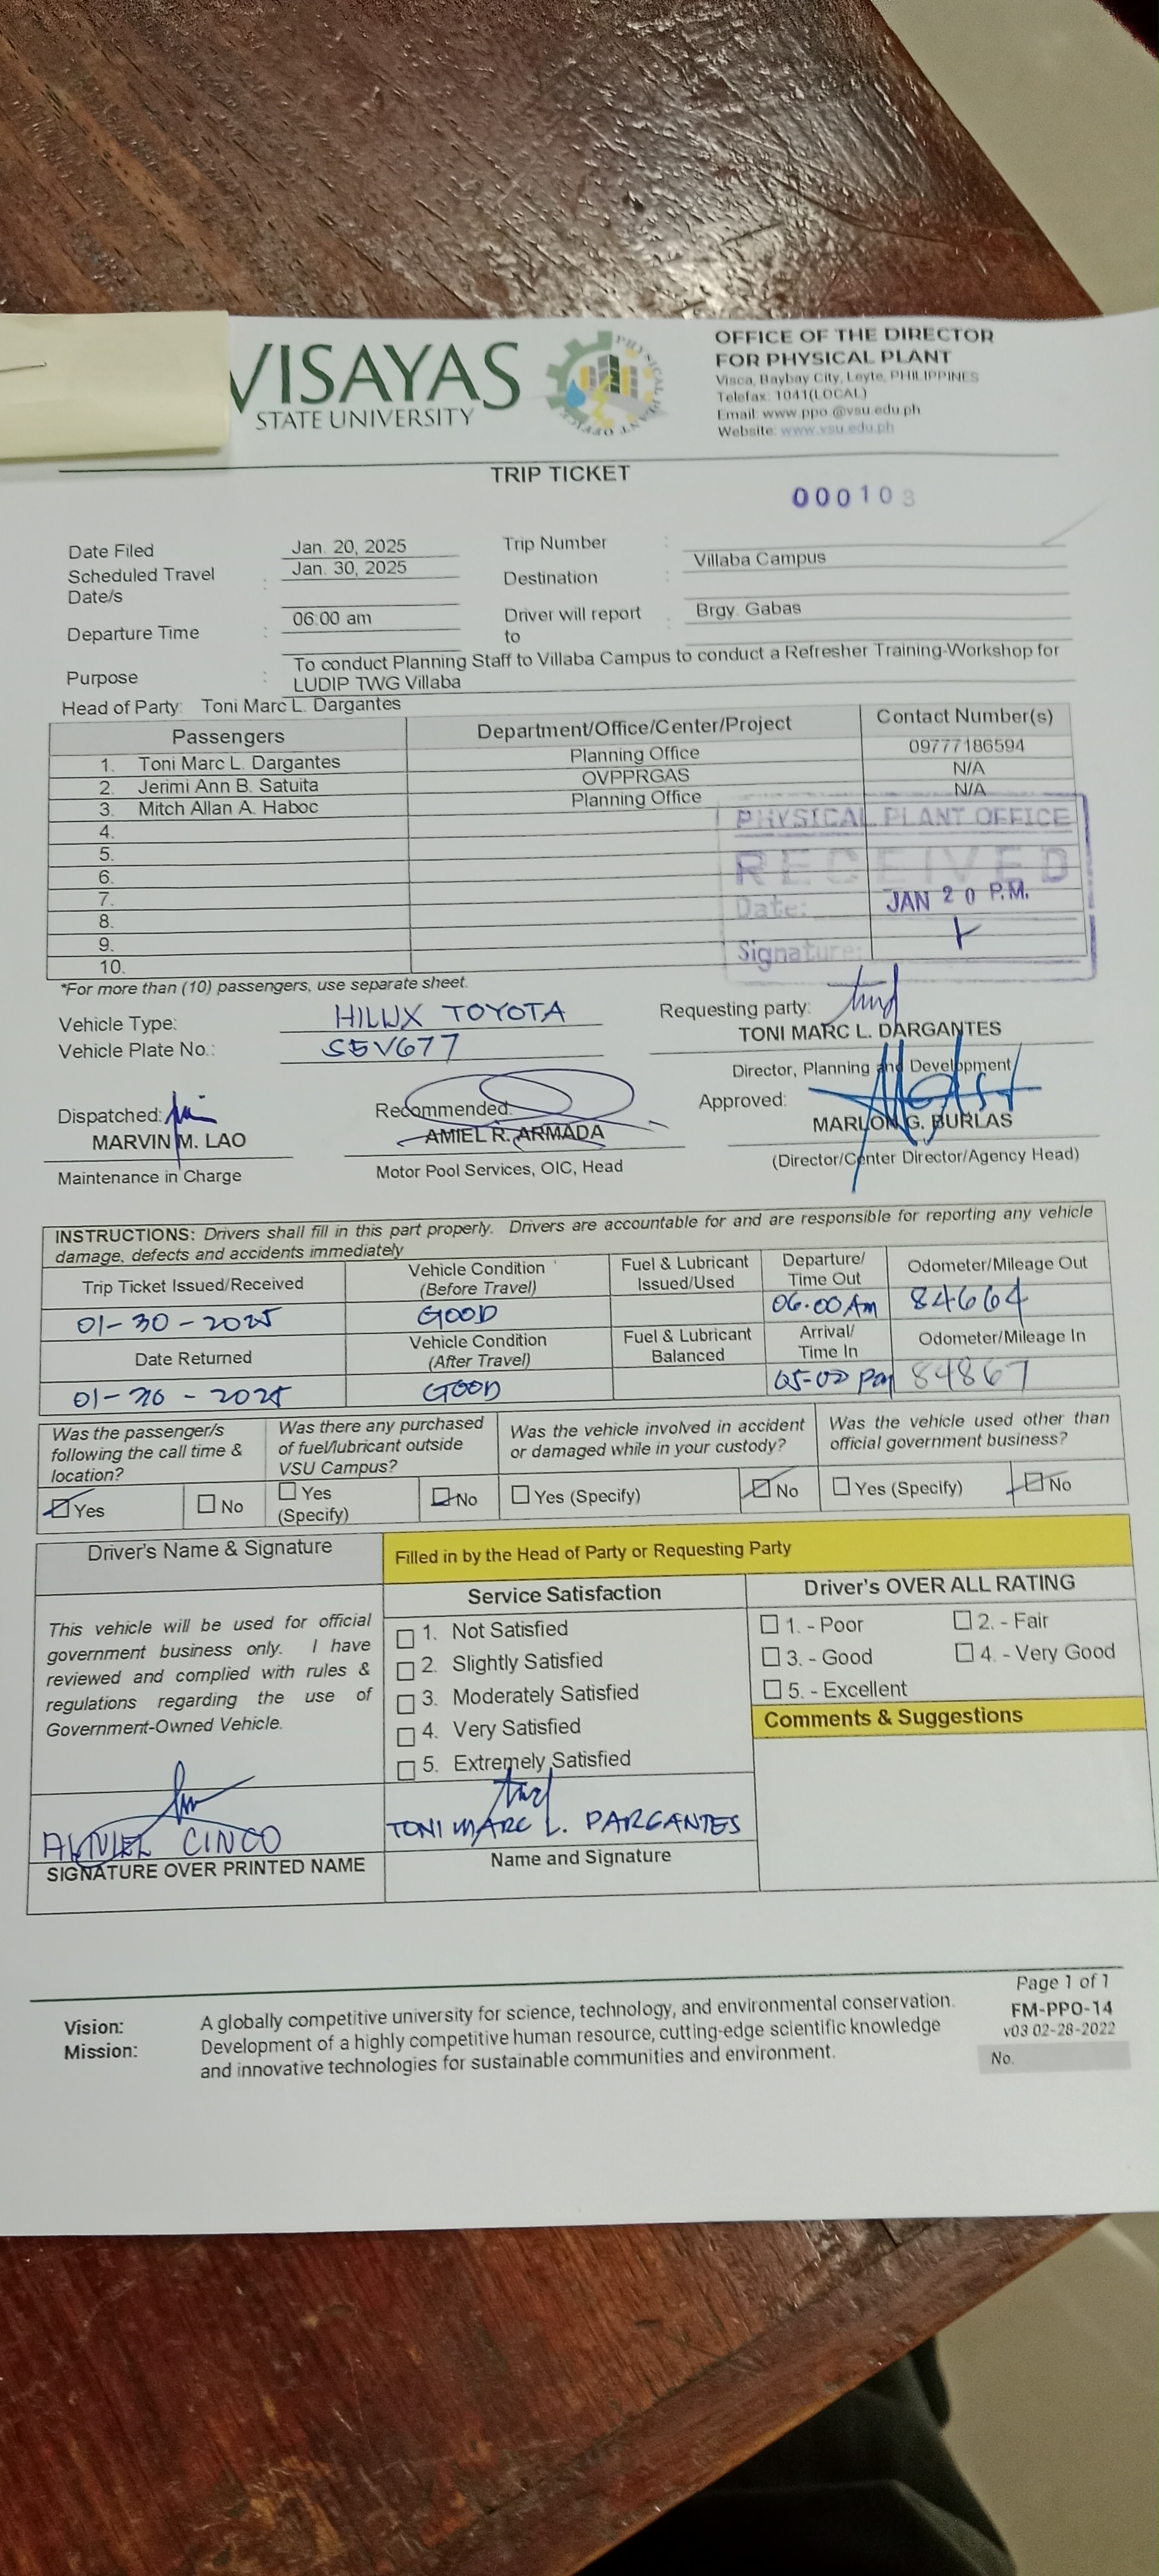 VISAYAS
STATE UNIVERSITY
PHYSICAL PLANT OFFICE
OFFICE OF THE DIRECTOR
FOR PHYSICAL PLANT
Visca, Baybay City, Leyte, PHILIPPINES
Telefax. 1041(LOCAL)
Email: www.ppo.@vsu.edu.ph
Website: www.vsu.edu.ph
TRIP TICKET
000103
Date Filed Jan. 20, 2025 Trip Number :
Scheduled Travel Date/s : Jan. 30, 2025 Destination : Villaba Campus
Departure Time : 06:00 am Driver will report to : Brgy. Gabas
Purpose : To conduct Planning Staff to Villaba Campus to conduct a Refresher Training-Workshop for
LUDIP TWG Villaba
Head of Party: Toni Marc L. Dargantes
Passengers Department/Office/Center/Project Contact Number(s)
1. Toni Marc L. Dargantes Planning Office 09777186594
2. Jerimi Ann B. Satuita OVPPRGAS N/A
3. Mitch Allan A. Haboc Planning Office N/A
4.
5.
6.
7.
8.
9.
10.
PHYSICAL PLANT OFFICE
RECEIVED
Date: JAN 20 P.M.
Signature:
*For more than (10) passengers, use separate sheet.
Vehicle Type: HILUX TOYOTA
Vehicle Plate No.: S5V677
Requesting party:
TONI MARC L. DARGANTES
Director, Planning and Development
Dispatched:
MARVIN M. LAO
Maintenance in Charge
Recommended:
AMIEL R. ARMADA
Motor Pool Services, OIC, Head
Approved:
MARLON G. BURLAS
(Director/Center Director/Agency Head)
INSTRUCTIONS: Drivers shall fill in this part properly. Drivers are accountable for and are responsible for reporting any vehicle
damage, defects and accidents immediately
Trip Ticket Issued/Received Vehicle Condition (Before Travel) Fuel & Lubricant Issued/Used Departure/ Time Out Odometer/Mileage Out
01-30-2025 GOOD 06:00 Am 84664
Date Returned Vehicle Condition (After Travel) Fuel & Lubricant Balanced Arrival/ Time In Odometer/Mileage In
01-30-2025 GOOD 05-00 pm 84867
Was the passenger/s following the call time & location?
Yes No
Was there any purchased of fuel/lubricant outside VSU Campus?
Yes (Specify) No
Was the vehicle involved in accident or damaged while in your custody?
Yes (Specify) No
Was the vehicle used other than official government business?
Yes (Specify) No
Driver's Name & Signature
This vehicle will be used for official
government business only. I have
reviewed and complied with rules &
regulations regarding the use of
Government-Owned Vehicle.
CINCO
SIGNATURE OVER PRINTED NAME
Filled in by the Head of Party or Requesting Party
Service Satisfaction
1. Not Satisfied
2. Slightly Satisfied
3. Moderately Satisfied
4. Very Satisfied
5. Extremely Satisfied
TONI MARC L. DARGANTES
Name and Signature
Driver's OVER ALL RATING
1. - Poor 2. - Fair
3. - Good 4. - Very Good
5. - Excellent
Comments & Suggestions
Vision: A globally competitive university for science, technology, and environmental conservation.
Mission: Development of a highly competitive human resource, cutting-edge scientific knowledge
and innovative technologies for sustainable communities and environment.
Page 1 of 1
FM-PPO-14
v03 02-28-2022
No.